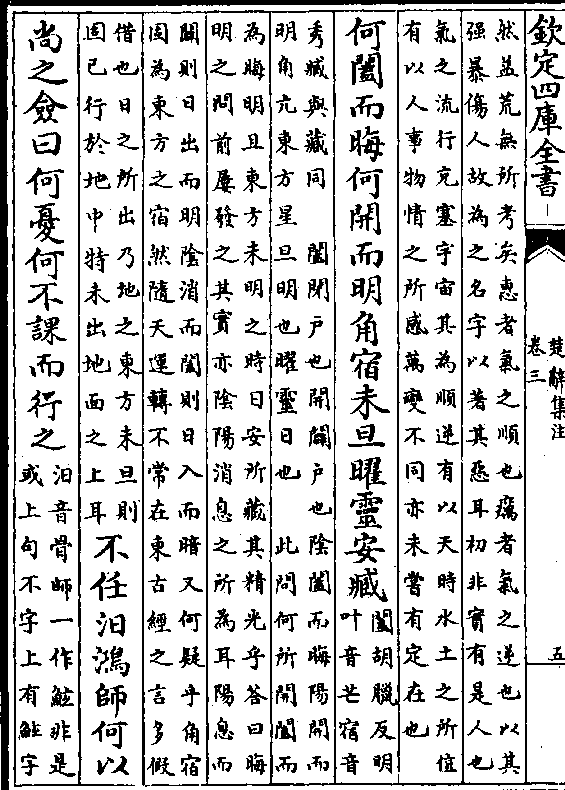 欽定四庫全書
楚辭集注
卷三
五
然益荒無所考矣惠者氣之順也癘者氣之逆也以其
强暴傷人故為之名字以著其惡耳初非實有是人也
氣之流行充塞宇宙其為順逆有以天時水土之所值
有以人事物情之所感萬變不同亦未嘗有定在也
何闔而晦何開而明角宿未旦曜靈安臧
闔胡臘反明
叶音芒宿音
秀臧與藏同　闔閉戸也開闢戸也陰闔而晦陽開而
明角亢東方星旦明也曜靈日也　此問何所開闔而
為晦明且東方未明之時日安所藏其精光乎答曰晦
明之問前屢發之其實亦陰陽消息之所為耳陽息而
闢則日出而明陰消而闔則日入而暗又何疑乎角宿
固為東方之宿然隨天運轉不常在東古經之言多假
借也日之所出乃地之東方未旦則
固已行於地中特未出地面之上耳
不任汩鴻師何以
尚之僉曰何憂何不課而行之
汩音骨師一作鮌非是
或上句不字上有鮌字